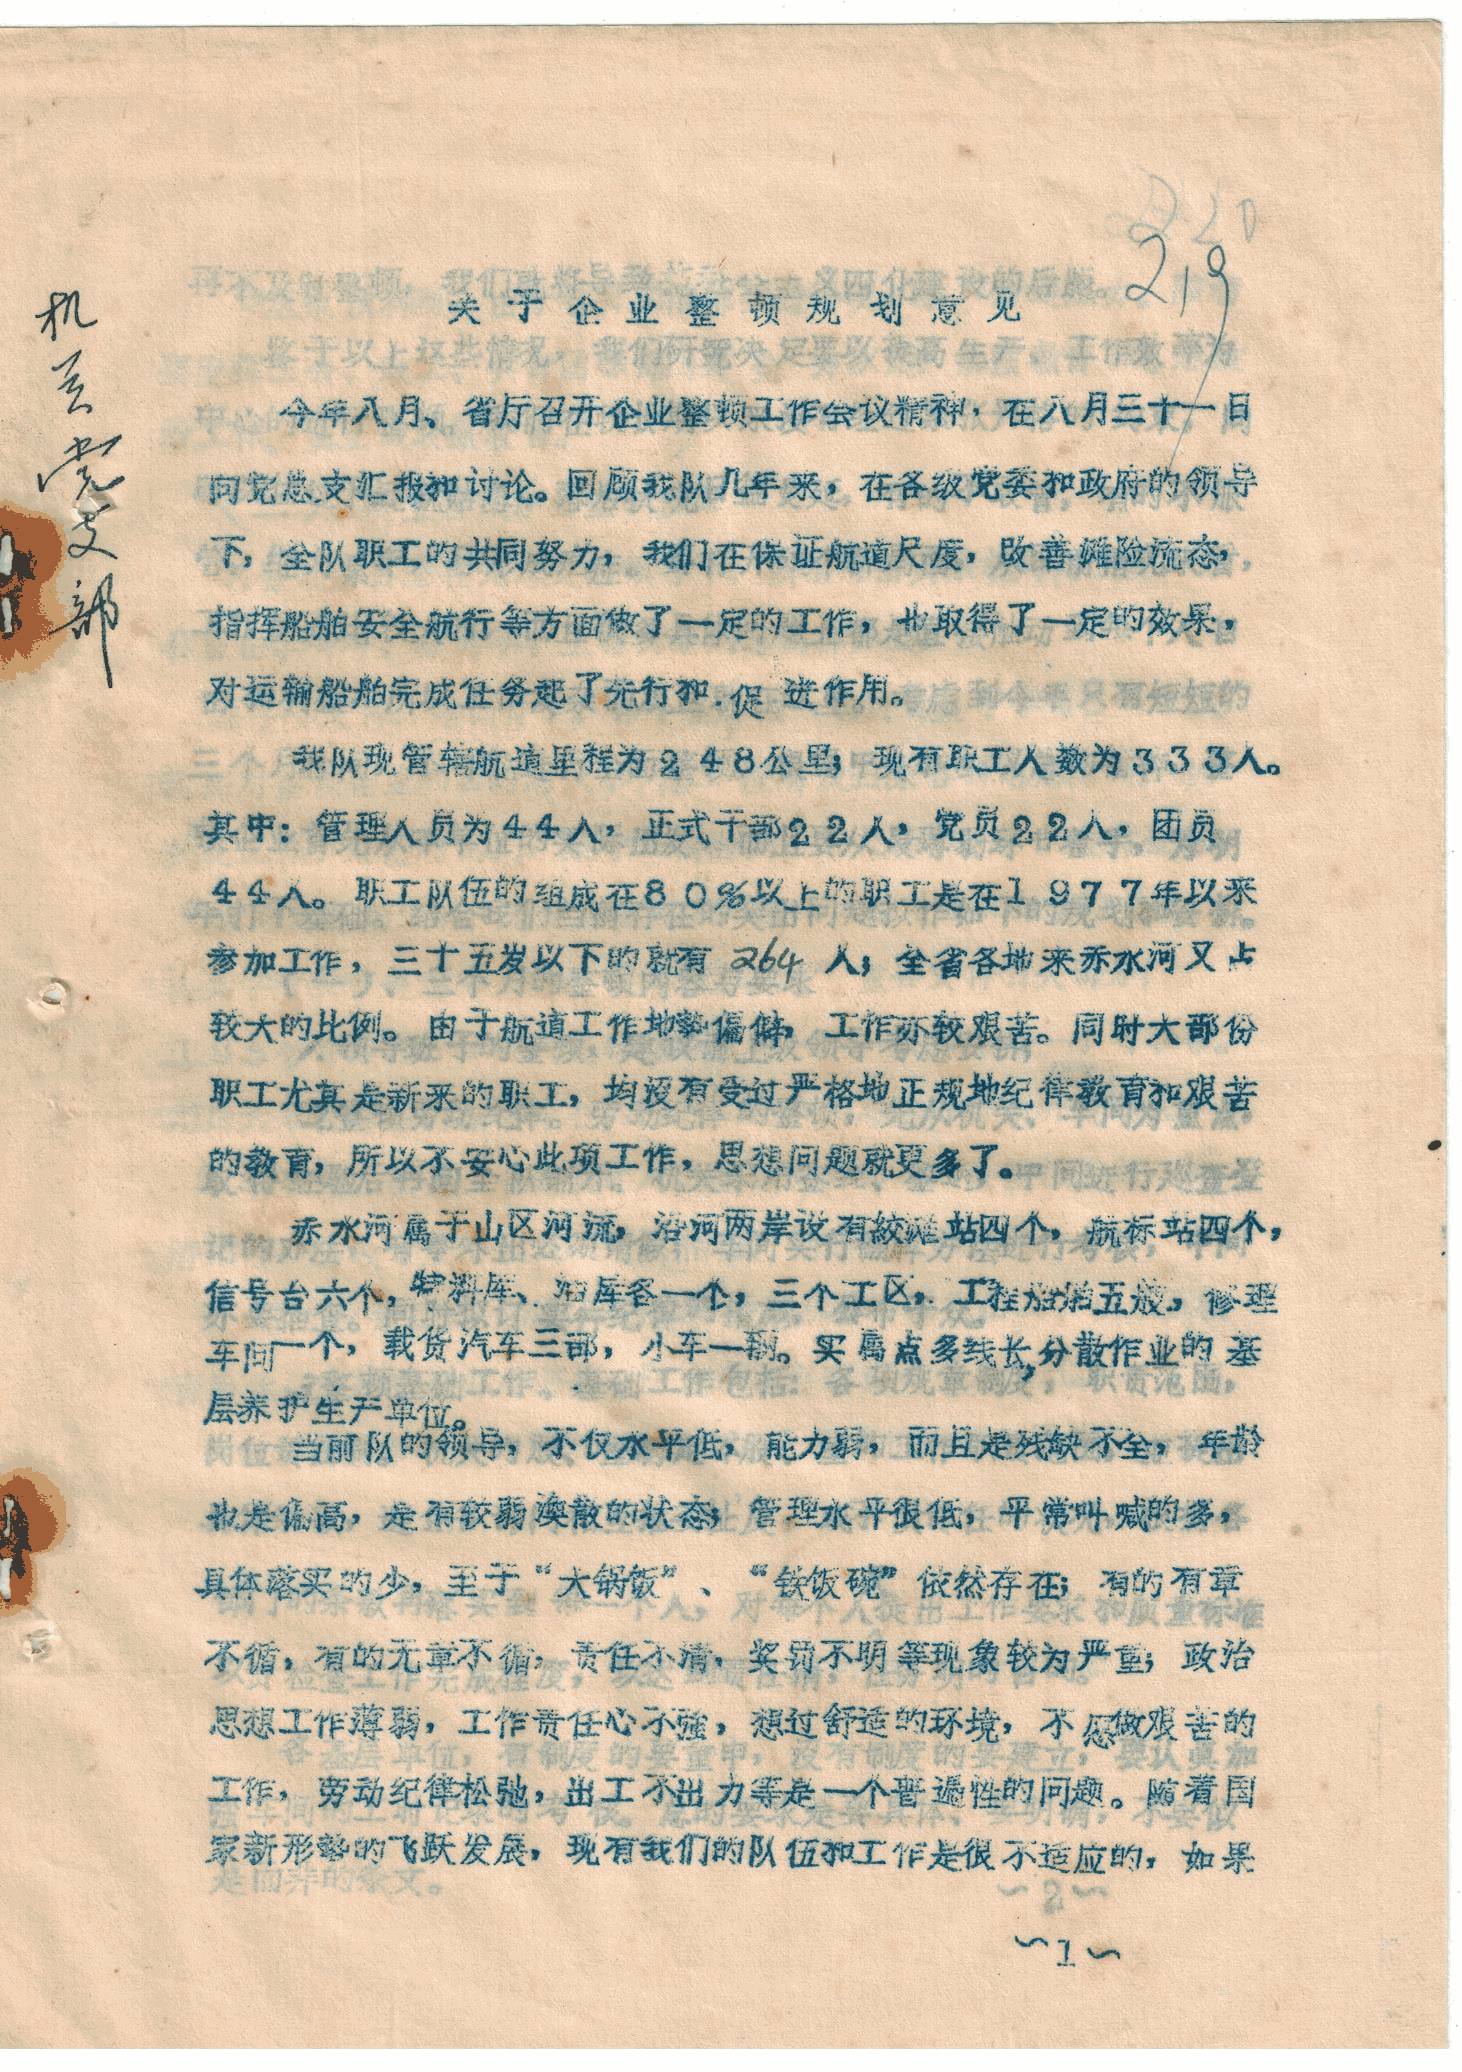 219
机关党支部
关于企业整顿规划意见
今年八月、省厅召开企业整顿工作会议精神，在八月三十一日
向党总支汇报和讨论。回顾我队几年来，在各级党委和政府的领导
下，全队职工的共同努力，我们在保证航道尺度，改善滩险流态，
指挥船舶安全航行等方面做了一定的工作，也取得了一定的效果，
对运输船舶完成任务起了先行和促进作用。
我队现管辖航道里程为248公里；现有职工人数为333人。
其中：管理人员为44人，正式干部22人，党员22人，团员
44人。职工队伍的组成在80%以上的职工是在1977年以来
参加工作，三十五岁以下的就有264人；全省各地来赤水河又占
较大的比例。由于航道工作地势偏僻，工作亦较艰苦。同时大部份
职工尤其是新来的职工，均没有受过严格地正规地纪律教育和艰苦
的教育，所以不安心此项工作，思想问题就更多了。
赤水河属于山区河流，沿河两岸设有绞滩站四个，航标站四个，
信号台六个，料库、油库各一个，三个工区，工程船舶五艘，修理
车间一个，载货汽车三部，小车一辆。实属点多线长，分散作业的基
层养护生产单位。
当前队的领导，不仅水平低，能力弱，而且是残缺不全，年龄
也是偏高，是有较弱涣散的状态；管理水平很低，平常叫喊的多，
具体落实的少，至于“大锅饭”、“铁饭碗”依然存在；有的有章
不循，有的无章不循，责任不清，奖罚不明等现象较为严重；政治
思想工作薄弱，工作责任心不强，想过舒适的环境，不愿做艰苦的
工作，劳动纪律松弛，出工不出力等是一个普遍性的问题。随着国
家新形势的飞跃发展，现有我们的队伍和工作是很不适应的，如果
~1~